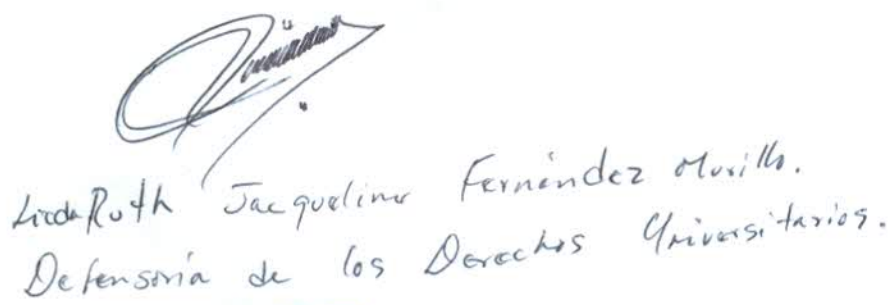 Licda Ruth Jacqueline Fernández Murillo.
Defensoría de los Derechos Universitarios.